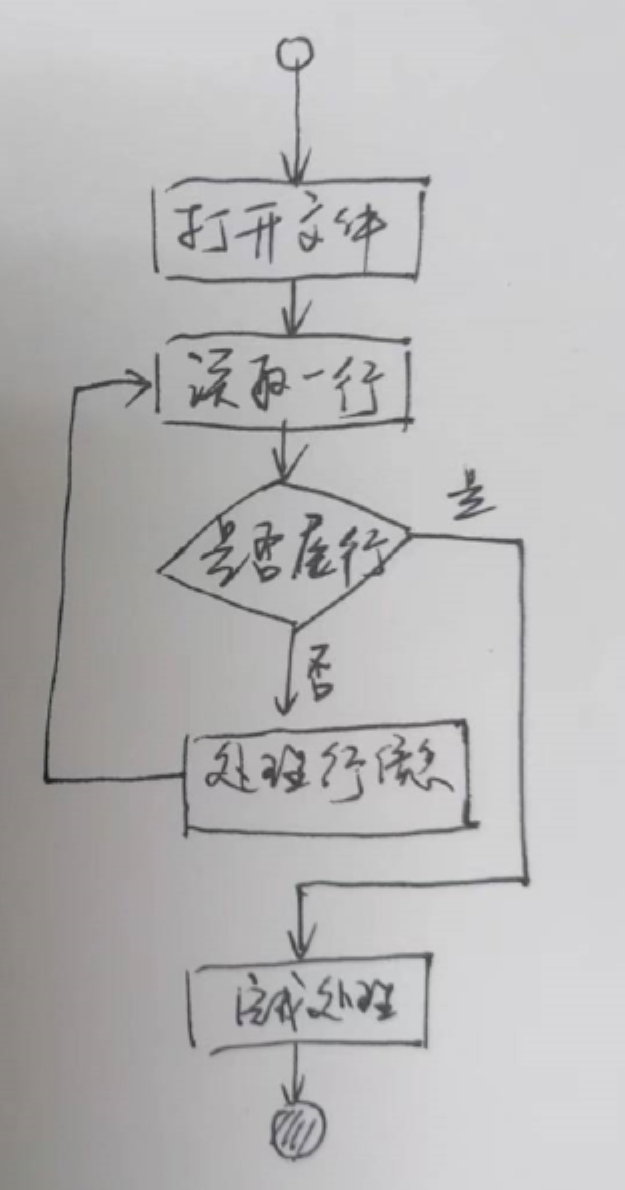 打开文件
读取一行
是
是否尾行
否
处理行信息
完成处理